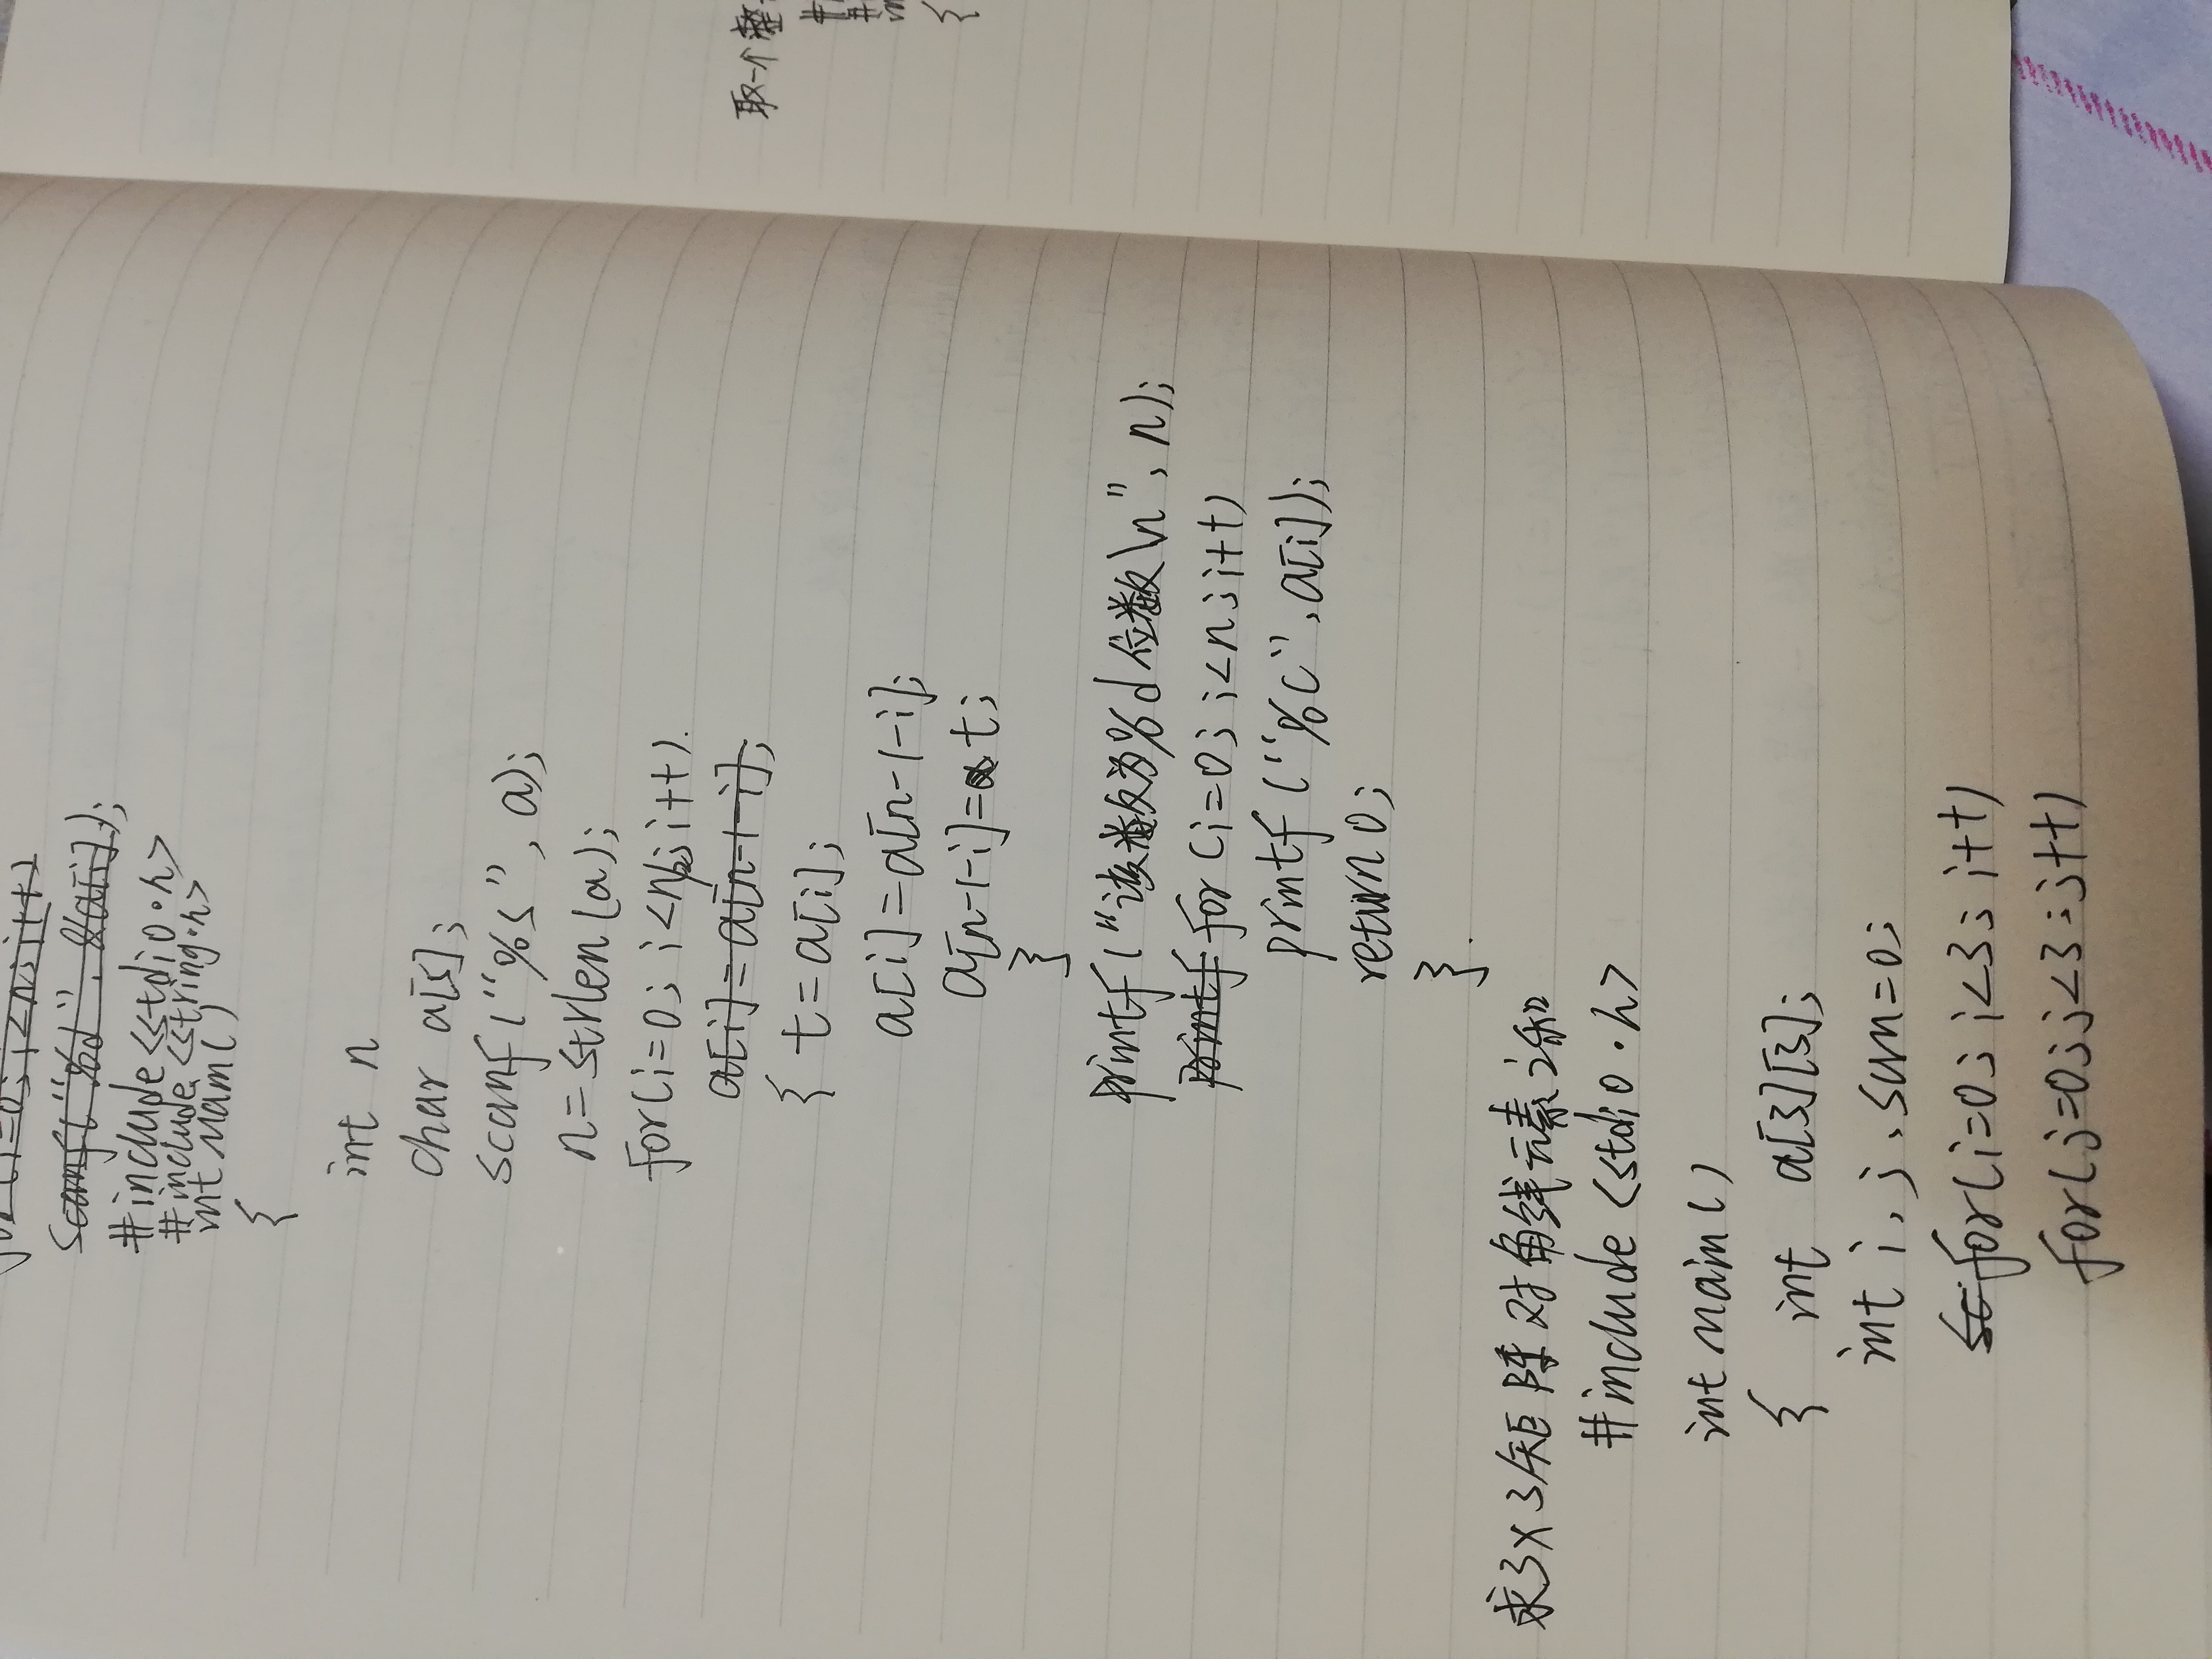 取一个整
{
for(i=0;i<n;i++)
scanf("%d",&a[i]);
#include<stdio.h>
#include<string.h>
int main()
{
int n
char a[5];
scanf("%s",a);
n=strlen(a);
for(i=0;i<n;i++)
a[i]=a[n-1-i];
{ t=a[i];
a[i]=a[n-1-i];
a[n-1-i]=t;
}
printf("该数为%d位数\n",n);
printf for(i=0;i<n;i++)
printf("%c",a[i]);
return 0;
}
求3×3矩阵对角线元素之和
#include<stdio.h>
int main()
{ int a[3][3];
int i,j,sum=0;
for(i=0;i<3;i++)
for(j=0;j<3;j++)